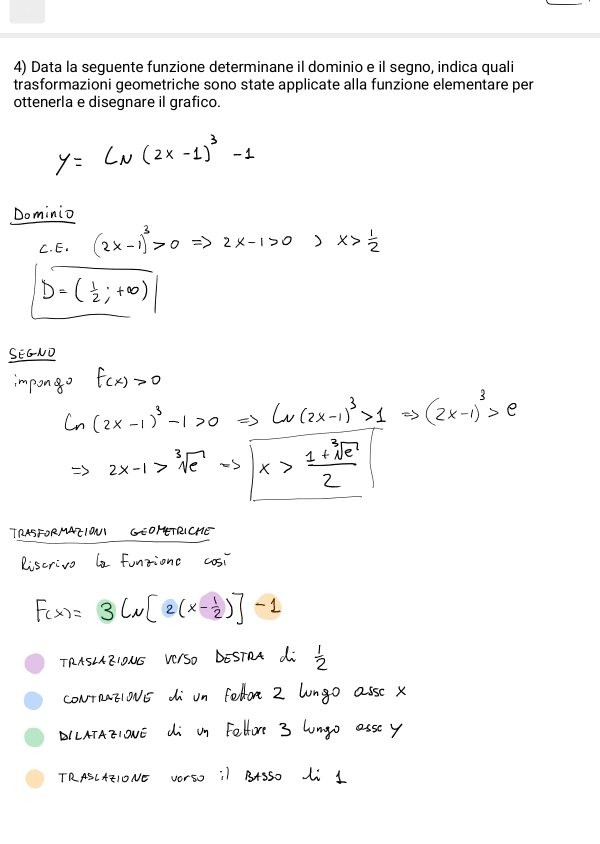 4) Data la seguente funzione determinane il dominio e il segno, indica quali
trasformazioni geometriche sono state applicate alla funzione elementare per
ottenerla e disegnare il grafico.
y= LN (2x -1)³ -1
Dominio
C.E. (2x-1)³>0 => 2x-1>0 ; x>1/2
D=(1/2; +∞)
SEGNO
impongo F(x)>0
Ln (2x-1)³-1>0 => LN(2x-1)³>1 => (2x-1)³>e
=> 2x-1>³√e => x > (1+³√e)/2
TRASFORMAZIONI GEOMETRICHE
Riscrivo la funzione così
F(x)= 3 LN[2(x-1/2)] -1
TRASLAZIONE verso DESTRA di 1/2
CONTRAZIONE di un fattore 2 lungo asse x
DILATAZIONE di un Fattore 3 lungo asse y
TRASLAZIONE verso il BASSO di 1